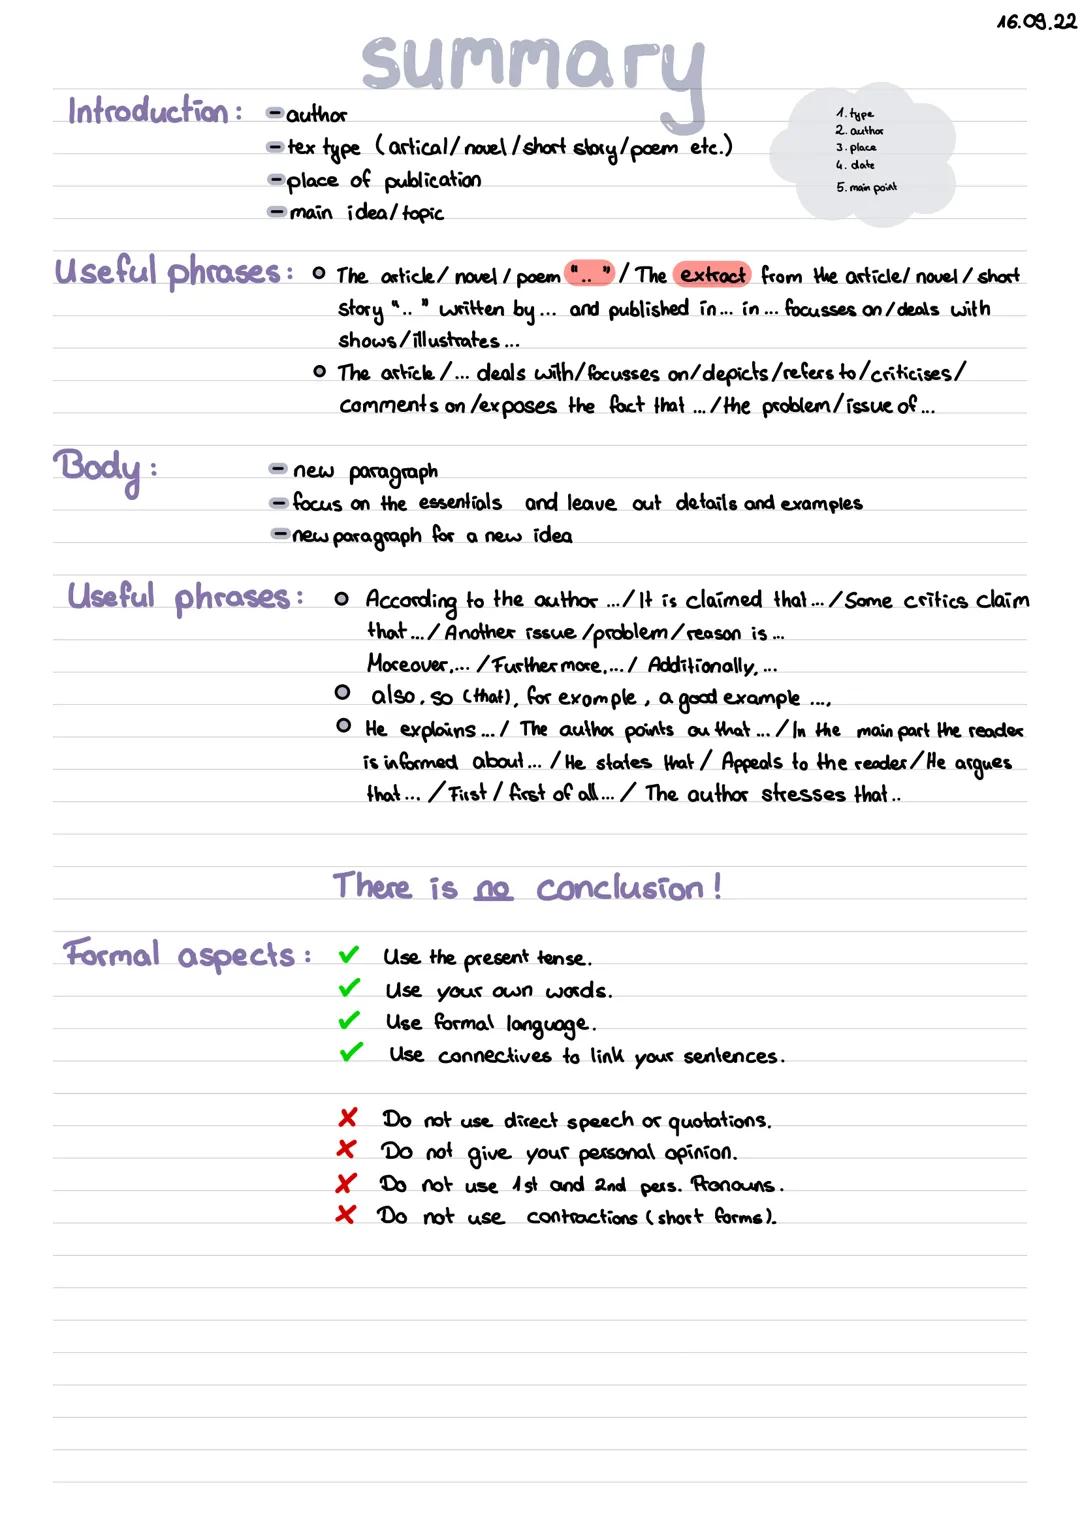 16.09.22
summary
Introduction: - author
- tex type (artical/novel/short story/poem etc.)
- place of publication
- main idea/topic
1. type
2. author
3. place
4. date
5. main point
Useful phrases: o The article/novel/poem ".." / The extract from the article/novel/short
story ".." written by... and published in... in... focusses on/deals with
shows/illustrates...
o The article/... deals with/focusses on/depicts/refers to/criticises/
comments on/exposes the fact that .../the problem/issue of...
Body: - new paragraph
- focus on the essentials and leave out details and examples
- new paragraph for a new idea
Useful phrases: o According to the author .../It is claimed that.../Some critics claim
that.../Another issue/problem/reason is...
Moreover,.../Furthermore,.../Additionally,...
o also, so (that), for example, a good example ...,
o He explains.../The author points ou that.../In the main part the reader
is informed about.../He states that/Appeals to the reader/He argues
that.../First/first of all.../The author stresses that..
There is no conclusion!
Formal aspects: ✓ Use the present tense.
✓ Use your own words.
✓ Use formal language.
✓ Use connectives to link your sentences.
✗ Do not use direct speech or quotations.
✗ Do not give your personal opinion.
✗ Do not use 1st and 2nd pers. Pronouns.
✗ Do not use contractions (short forms).